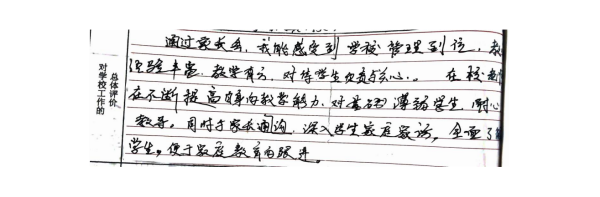 对学校工作的
总体评价
通过家长会，我能感受到学校管理到位，教
经验丰富，教学有方，对待学生负责点心。在校
在不断提高自身的教学能力，对基础薄弱学生，耐心
教导。同时于家长沟通，深入学生家庭家访，全面了
学生，便于家庭教育的跟进。